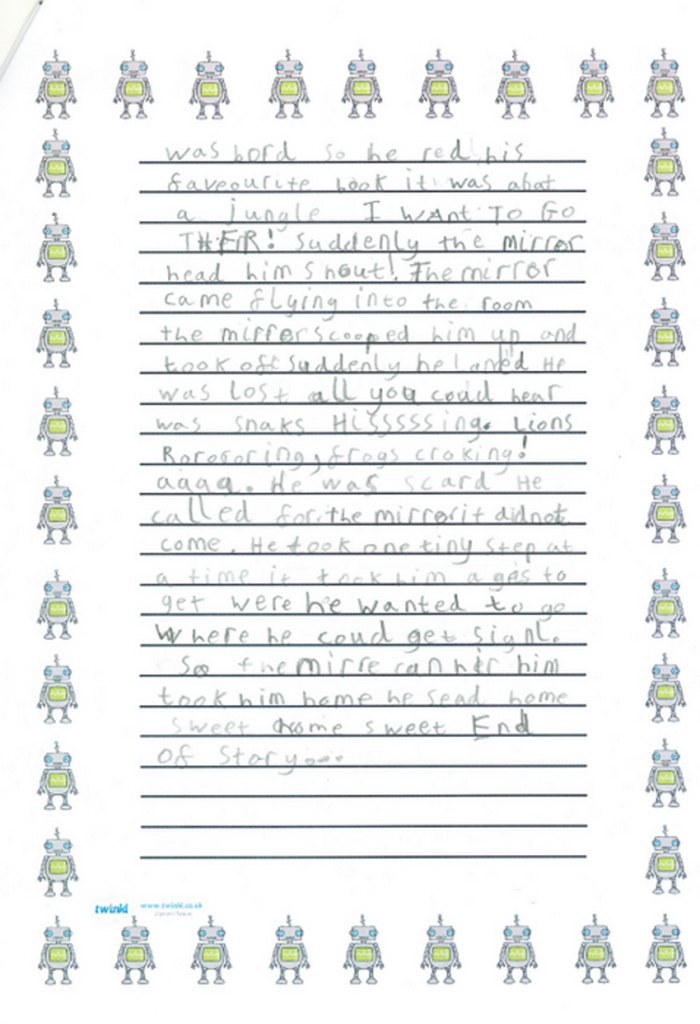 was bord so he red his
faveourite book it was abat
a jungle I WANT TO GO
THEIR! Suddenly the mirror
head him shout! The mirror
came flying into the room
the mirrer scooped him up and
took off suddenly he laned He
was lost all you coud hear
was snaks Hissssssing. Lions
Rorororing, frogs croking!
aaaa. He was scard He
called for the mirror it did not
come. He took one tiny step at
a time it took him ages to
get were he wanted to go
Where he coud get signl.
So the mirre can her him
took him home he sead home
sweet home sweet End
Of Story...
twinkl www.twinkl.co.uk